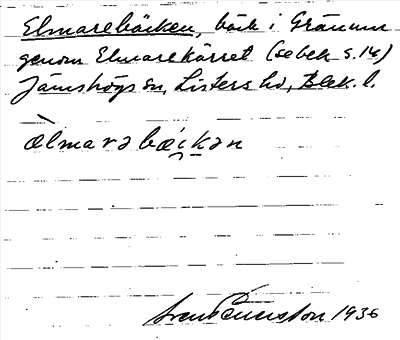 Elmarebäcken, bäck i Gränum
genom Elmarekärret (se bek s. 14)
Jämshögs sn, Listers hd, Blek. l.
àlmarəbæ̀kən
1936